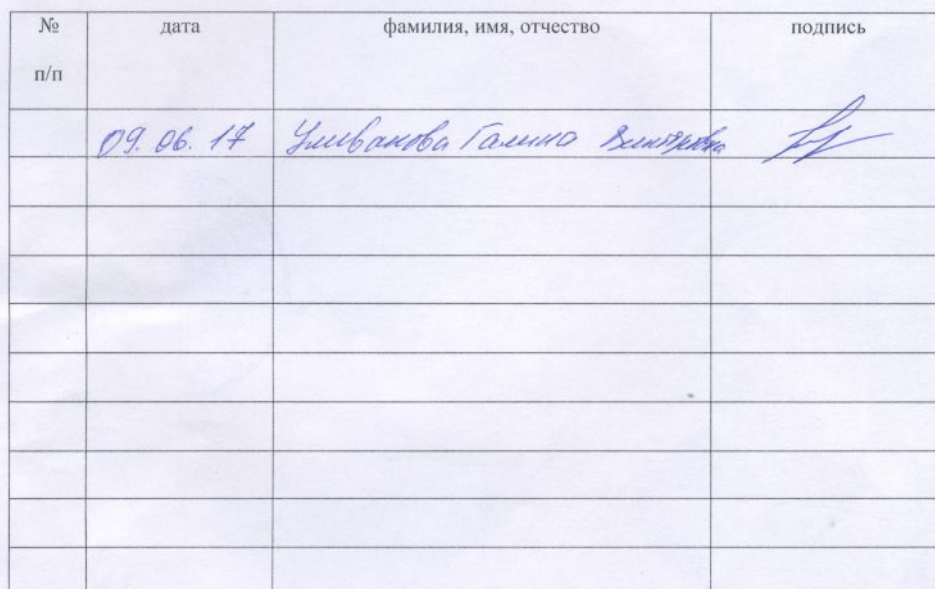 № дата фамилия, имя, отчество подпись
п/п
09.06.17 Галина Викторовна